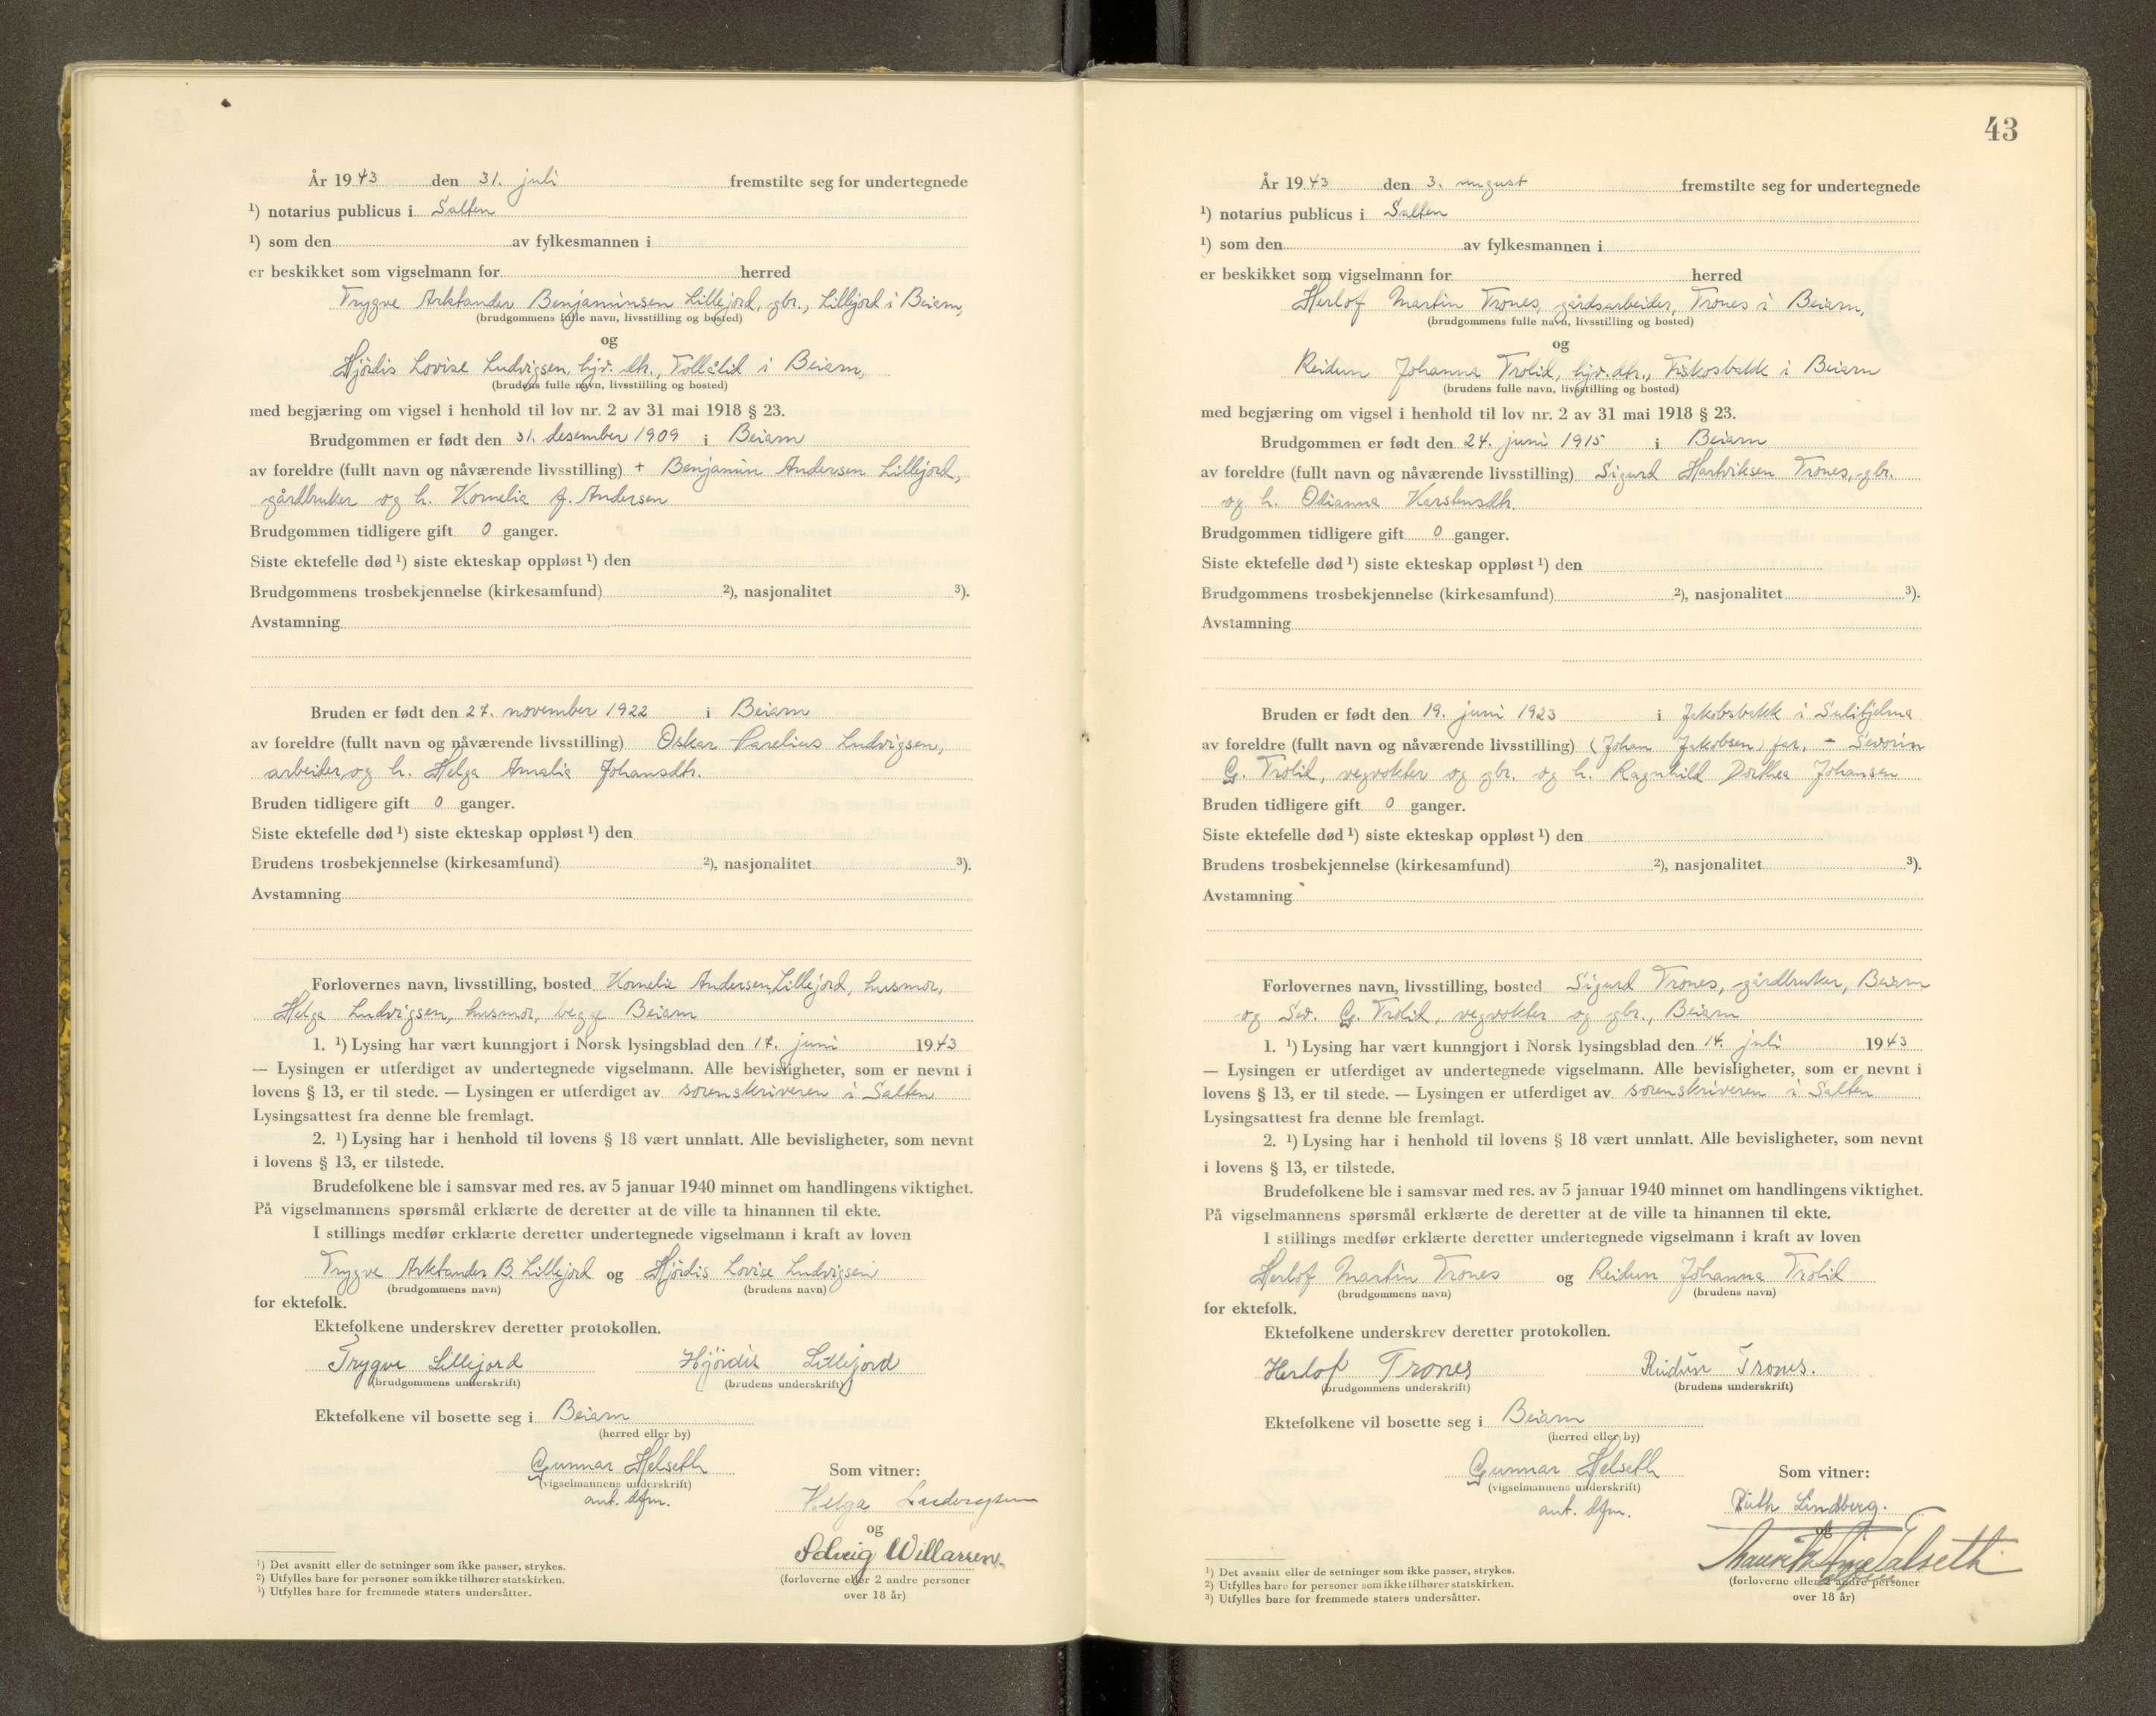 År 1943 den 31. juli fremstilte seg for undertegnede
¹) notarius publicus i Salten
¹) som den av fylkesmannen i
er beskikket som vigselmann for herred
Trygve Arktander Benjaminsen Lillejord, gbr., Lillejord i Beiarn,
(brudgommens fulle navn, livsstilling og bosted)
og
Hjördis Lovise Ludvigsen, hjv. dtr., Tollålid i Beiarn,
(brudens fulle navn, livsstilling og bosted)
med begjæring om vigsel i henhold til lov nr. 2 av 31 mai 1918 § 23.
Brudgommen er født den 31. desember 1909 i Beiarn
av foreldre (fullt navn og nåværende livsstilling) + Benjamin Andersen Lillejord,
gårdbruker og h. Kornelia f. Andersen
Brudgommen tidligere gift 0 ganger.
Siste ektefelle død ¹) siste ekteskap oppløst ¹) den
Brudgommens trosbekjennelse (kirkesamfund) ²), nasjonalitet ³).
Avstamning
Bruden er født den 27. november 1922 i Beiarn
av foreldre (fullt navn og nåværende livsstilling) Oskar Parelius Ludvigsen,
arbeider, og h. Helga Amalia Johansdtr.
Bruden tidligere gift 0 ganger.
Siste ektefelle død ¹) siste ekteskap oppløst ¹) den
Brudens trosbekjennelse (kirkesamfund) ²), nasjonalitet ³).
Avstamning
Forlovernes navn, livsstilling, bosted Kornelia Andersen Lillejord, husmor,
Helga Ludvigsen, husmor, begge Beiarn
1. ¹) Lysing har vært kunngjort i Norsk lysingsblad den 17. juni 1943
— Lysingen er utferdiget av undertegnede vigselmann. Alle bevisligheter, som er nevnt i
lovens § 13, er til stede. — Lysingen er utferdiget av sorenskriveren i Salten
Lysingsattest fra denne ble fremlagt.
2. ¹) Lysing har i henhold til lovens § 18 vært unnlatt. Alle bevisligheter, som nevnt
i lovens § 13, er tilstede.
Brudefolkene ble i samsvar med res. av 5 januar 1940 minnet om handlingens viktighet.
På vigselmannens spørsmål erklærte de deretter at de ville ta hinannen til ekte.
I stillings medfør erklærte deretter undertegnede vigselmann i kraft av loven
Trygve Arktander B. Lillejord og Hjördis Lovise Ludvigsen
(brudgommens navn) (brudens navn)
for ektefolk.
Ektefolkene underskrev deretter protokollen.
Trygve Lillejord Hjördis Lillejord
(brudgommens underskrift) (brudens underskrift)
Ektefolkene vil bosette seg i Beiarn
(herred eller by)
Gunnar Helseth
(vigselmannens underskrift)
aut. dfm.
Som vitner:
Helga Ludvigsen
og
Solveig Willarsen
(forloverne eller 2 andre personer
over 18 år)
¹) Det avsnitt eller de setninger som ikke passer, strykes.
²) Utfylles bare for personer som ikke tilhører statskirken.
³) Utfylles bare for fremmede staters undersåtter.
43
År 1943 den 3. august fremstilte seg for undertegnede
¹) notarius publicus i Salten
¹) som den av fylkesmannen i
er beskikket som vigselmann for herred
Herlof Martin Trones, gårdsarbeider, Trones i Beiarn,
(brudgommens fulle navn, livsstilling og bosted)
og
Reidun Johanna Trolid, hjv. dtr., Fiskosbakk i Beiarn
(brudens fulle navn, livsstilling og bosted)
med begjæring om vigsel i henhold til lov nr. 2 av 31 mai 1918 § 23.
Brudgommen er født den 24. juni 1915 i Beiarn
av foreldre (fullt navn og nåværende livsstilling) Sigurd Hartviksen Trones, gbr.
og h. Odianna Karstensdtr.
Brudgommen tidligere gift 0 ganger.
Siste ektefelle død ¹) siste ekteskap oppløst ¹) den
Brudgommens trosbekjennelse (kirkesamfund) ²), nasjonalitet ³).
Avstamning
Bruden er født den 19. juni 1923 i Jakobsbakk i Sulitjelma
av foreldre (fullt navn og nåværende livsstilling) (Johan Jakobsen) far, - Severin
G. Trolid, vegvokter og gbr. og h. Ragnhild Dorthea Johansen
Bruden tidligere gift 0 ganger.
Siste ektefelle død ¹) siste ekteskap oppløst ¹) den
Brudens trosbekjennelse (kirkesamfund) ²), nasjonalitet ³).
Avstamning
Forlovernes navn, livsstilling, bosted Sigurd Trones, gårdbruker, Beiarn
og Sev. G. Trolid, vegvokter og gbr., Beiarn
1. ¹) Lysing har vært kunngjort i Norsk lysingsblad den 14. juli 1943
— Lysingen er utferdiget av undertegnede vigselmann. Alle bevisligheter, som er nevnt i
lovens § 13, er til stede. — Lysingen er utferdiget av sorenskriveren i Salten
Lysingsattest fra denne ble fremlagt.
2. ¹) Lysing har i henhold til lovens § 18 vært unnlatt. Alle bevisligheter, som nevnt
i lovens § 13, er tilstede.
Brudefolkene ble i samsvar med res. av 5 januar 1940 minnet om handlingens viktighet.
På vigselmannens spørsmål erklærte de deretter at de ville ta hinannen til ekte.
I stillings medfør erklærte deretter undertegnede vigselmann i kraft av loven
Herlof Martin Trones og Reidun Johanna Trolid
(brudgommens navn) (brudens navn)
for ektefolk.
Ektefolkene underskrev deretter protokollen.
Herlof Trones Reidun Trones.
(brudgommens underskrift) (brudens underskrift)
Ektefolkene vil bosette seg i Beiarn
(herred eller by)
Gunnar Helseth
(vigselmannens underskrift)
aut. dfm.
Som vitner:
Ruth Lindberg.
og
(forloverne eller 2 andre personer
over 18 år)
¹) Det avsnitt eller de setninger som ikke passer, strykes.
²) Utfylles bare for personer som ikke tilhører statskirken.
³) Utfylles bare for fremmede staters undersåtter.